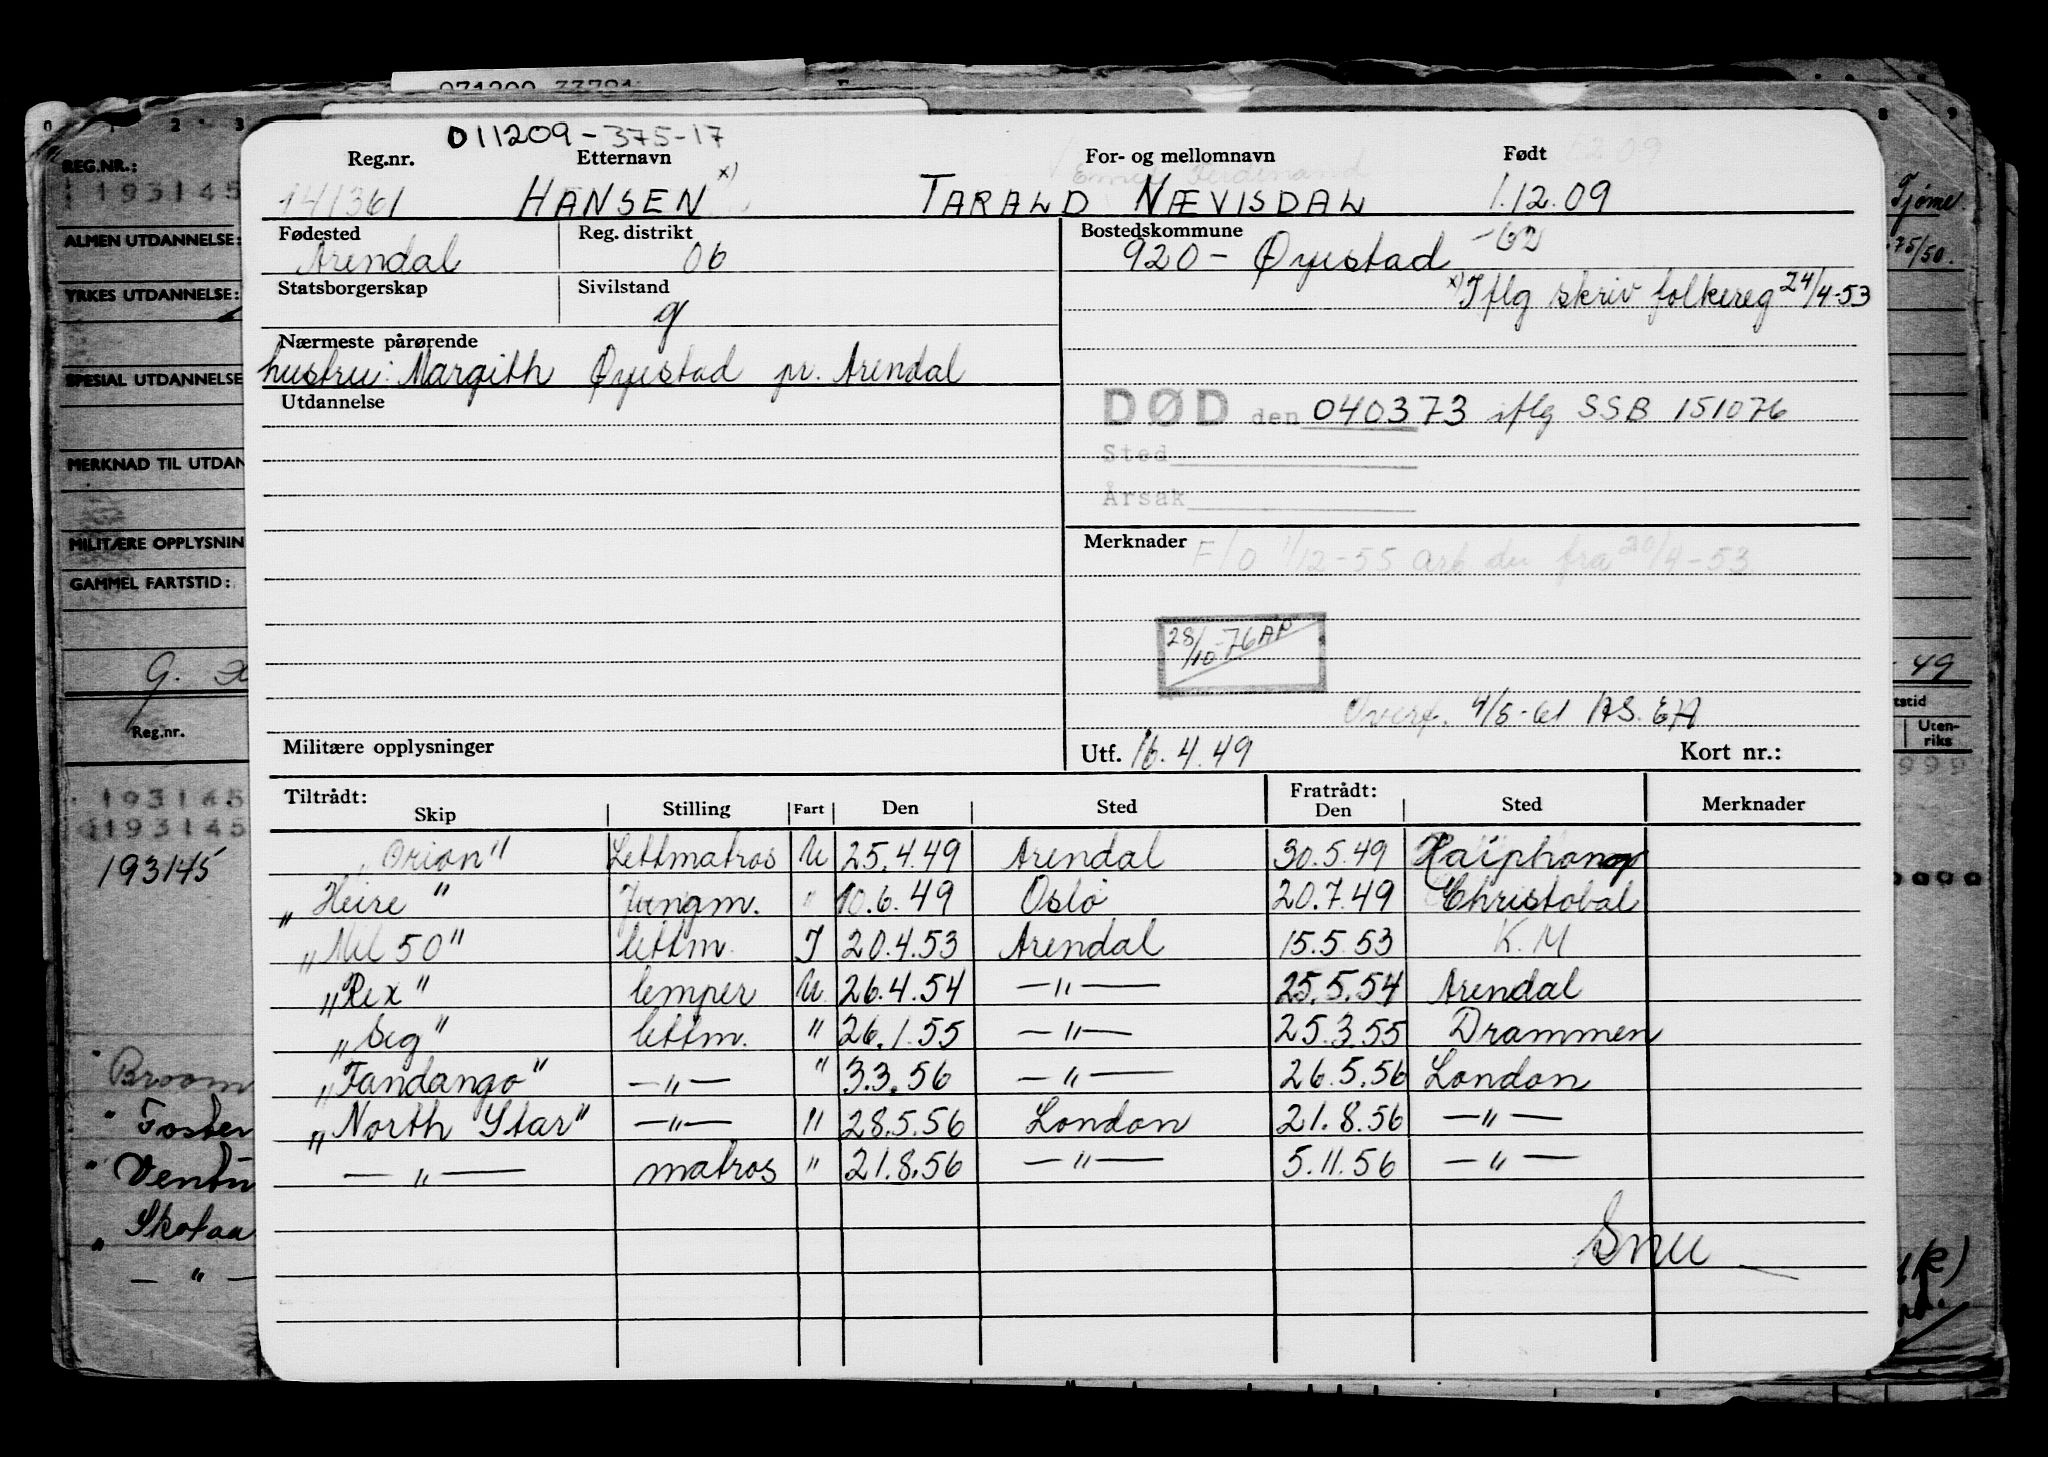 071209 33781
0 1 2 3 8 9
REG.NR.:
193145
Tjøme
ALMEN UTDANNELSE:
75/50.
YRKES UTDANNELSE:
SPESIAL UTDANNELSE
MERKNAD TIL UTDAN
MILITÆRE OPPLYSNIN
GAMMEL FARTSTID:
G.
49
Reg.nr.
tstid
Uten-
riks
193145
193145
193145
999
Broom
" Foster
" Ventu
" Skotaa
— " —
011209-375-17
Reg.nr. Etternavn For- og mellomnavn Født
141361 HANSEN x) TARALD NÆVISDAL 1.12.09
Fødested Reg. distrikt Bostedskommune
Arendal 06 920 - Øyestad -62
Statsborgerskap Sivilstand x) Iflg skriv folkereg 24/4-53
g
Nærmeste pårørende
hustru: Margith Øyestad pr. Arendal
Utdannelse DØD den 040373 iflg SSB 151076
Sted
Årsak
Merknader F/O 1/12-55 Arb. du fra 20/4-53
28/10-76 AP
Overf. 4/5-61 AS. EA
Militære opplysninger Utf. 16.4.49 Kort nr.:
Tiltrådt: Fratrådt:
Skip Stilling Fart Den Sted Den Sted Merknader
"Orion" Lettmatros U 25.4.49 Arendal 30.5.49 Haiphong
"Heire" Jungm. " 10.6.49 Oslo 20.7.49 Christobal
"Mil 50" lettm. I 20.4.53 Arendal 15.5.53 K.M
"Rex" lemper U 26.4.54 — " — 25.5.54 Arendal
"Seg" lettm. " 26.1.55 — " — 25.3.55 Drammen
"Fandango" — " — " 3.3.56 — " — 26.5.56 London
"North Star" — " — " 28.5.56 London 21.8.56 — " —
— " — matros " 21.8.56 — " — 5.11.56 — " —
Snu